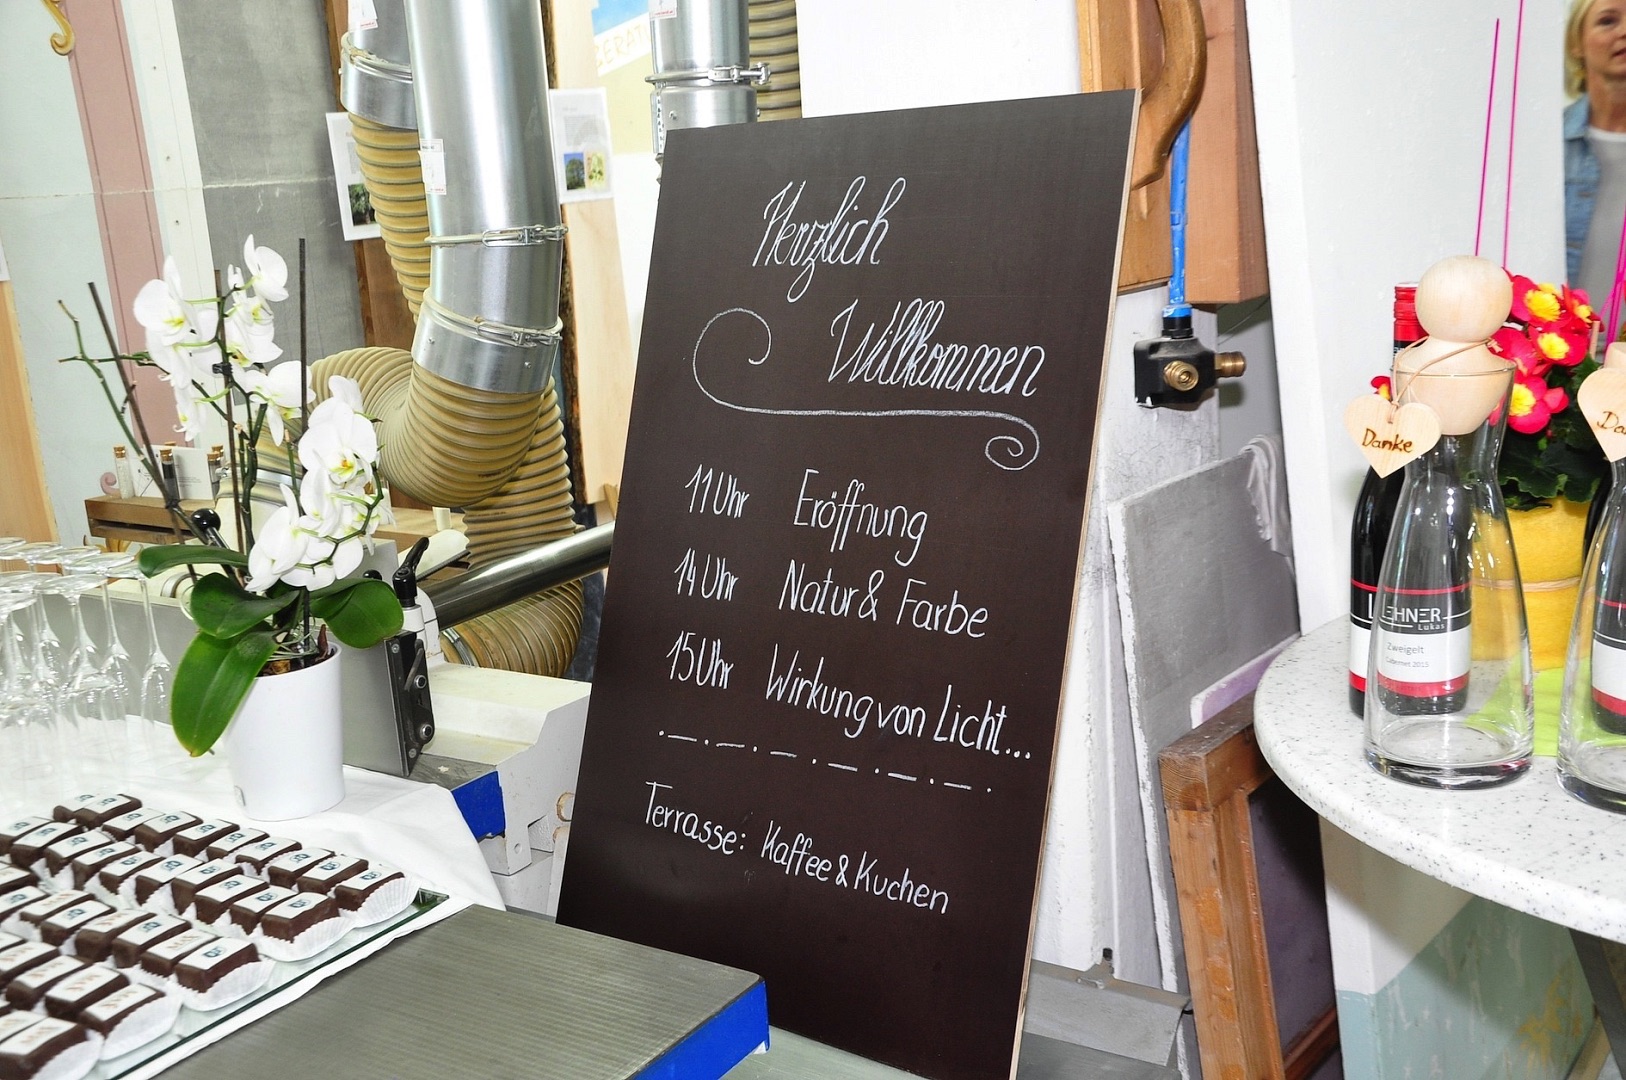 Herzlich
Willkommen
11 Uhr Eröffnung
14 Uhr Natur & Farbe
15 Uhr Wirkung von Licht...
Terrasse: Kaffee & Kuchen
Danke
LEHNER
Lukas
Zweigelt
Cabernet 2015